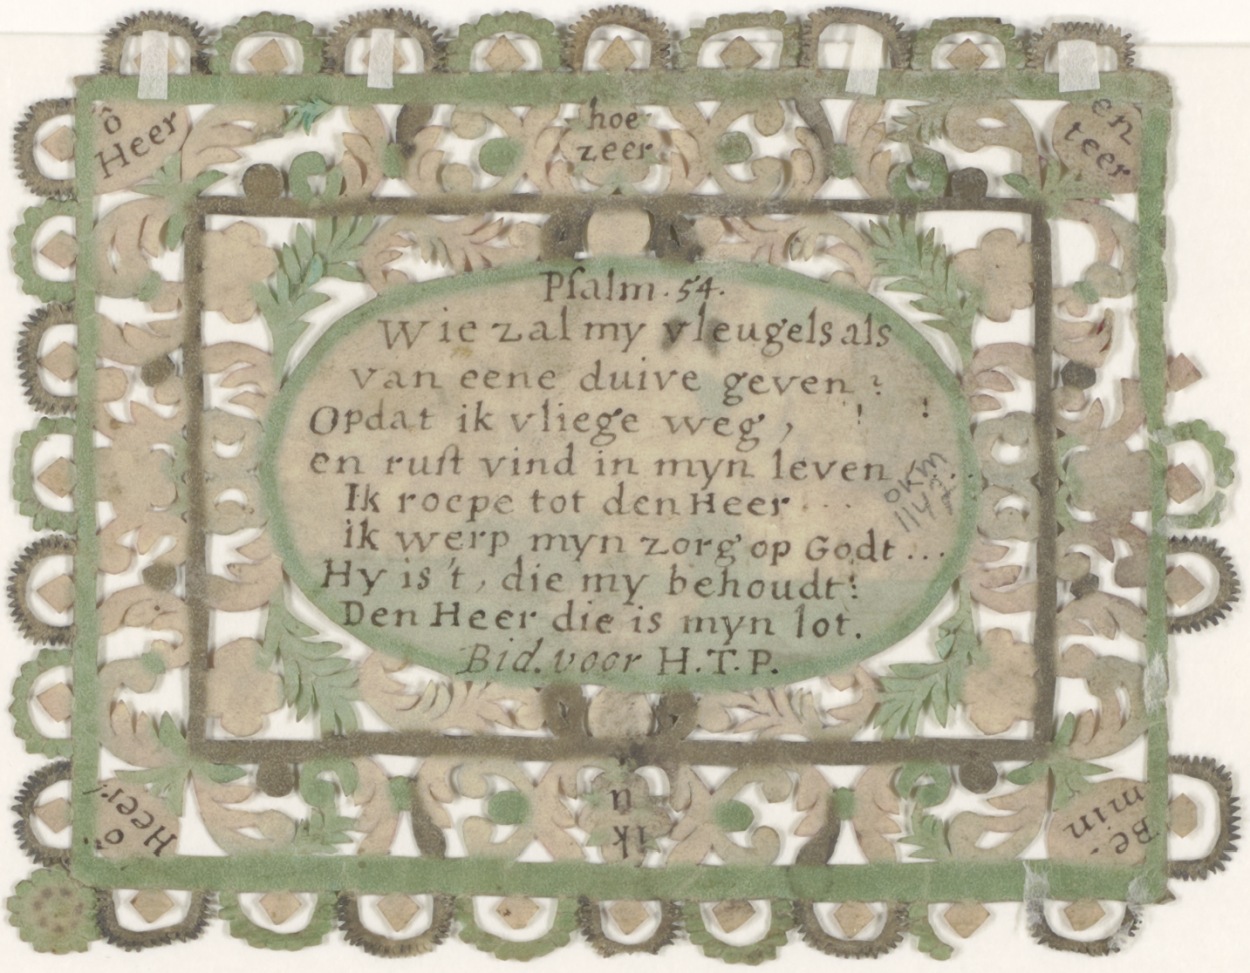 ô
Heer
hoe
zeer
en
teer
Psalm. 54.
Wie zal my vleugels als
van eene duive geven?
Opdat ik vliege weg, ! !
en rust vind in myn leven
Ik roepe tot den Heer ...
ik werp myn zorg op Godt ...
Hy is 't, die my behoudt!
Den Heer die is myn lot.
Bid. voor H.T.P.
okm
Be-
min
ik
u
o
Heer!